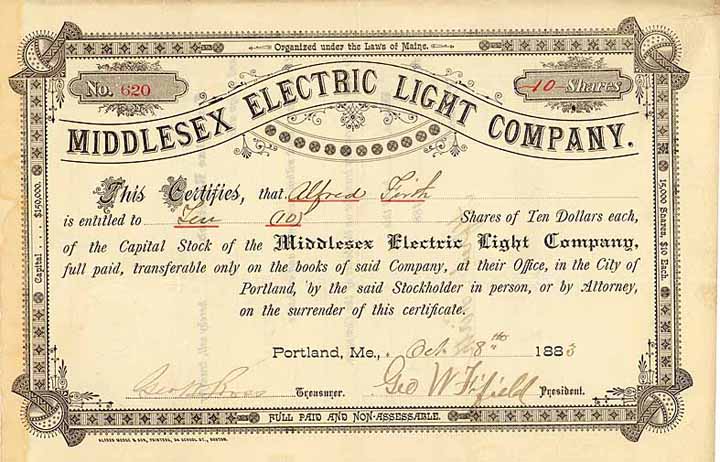 Organized under the Laws of Maine.
No. 620
10 Shares
MIDDLESEX ELECTRIC LIGHT COMPANY.
This Certifies, that Alfred Firth
is entitled to Ten (10) Shares of Ten Dollars each,
of the Capital Stock of the Middlesex Electric Light Company,
full paid, transferable only on the books of said Company, at their Office, in the City of
Portland, by the said Stockholder in person, or by Attorney,
on the surrender of this certificate.
Portland, Me., Oct 8th 1883
Treasurer. Geo W Fifield President.
Capital . . . . $150,000.
15,000 Shares, $10 Each.
FULL PAID AND NON-ASSESSABLE.
ALFRED MUDGE & SON, PRINTERS, 24 SCHOOL ST., BOSTON.